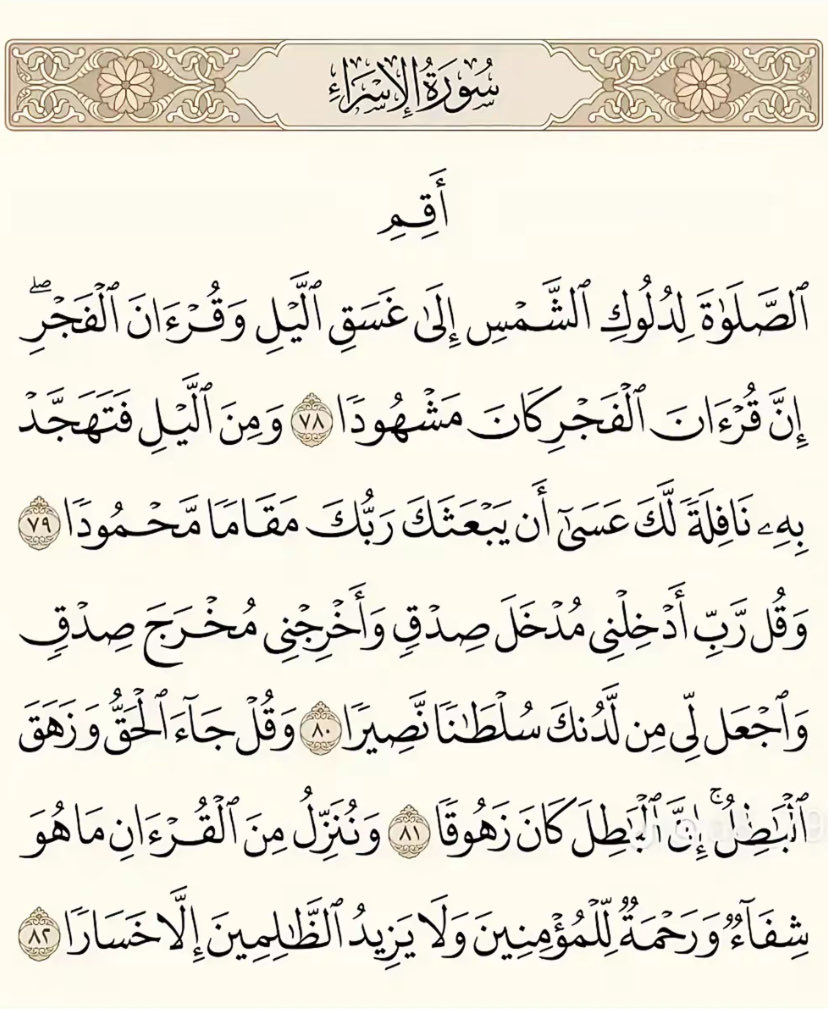 سُورَةُ الإِسْرَاءِ
أَقِمِ
ٱلصَّلَوٰةَ لِدُلُوكِ ٱلشَّمْسِ إِلَىٰ غَسَقِ ٱلَّيْلِ وَقُرْءَانَ ٱلْفَجْرِۖ
إِنَّ قُرْءَانَ ٱلْفَجْرِ كَانَ مَشْهُودًا ٧٨ وَمِنَ ٱلَّيْلِ فَتَهَجَّدْ
بِهِۦ نَافِلَةً لَّكَ عَسَىٰٓ أَن يَبْعَثَكَ رَبُّكَ مَقَامًا مَّحْمُودًا ٧٩
وَقُل رَّبِّ أَدْخِلْنِى مُدْخَلَ صِدْقٍ وَأَخْرِجْنِى مُخْرَجَ صِدْقٍ
وَٱجْعَل لِّى مِن لَّدُنكَ سُلْطَٰنًا نَّصِيرًا ٨٠ وَقُلْ جَآءَ ٱلْحَقُّ وَزَهَقَ
ٱلْبَٰطِلُۚ إِنَّ ٱلْبَٰطِلَ كَانَ زَهُوقًا ٨١ وَنُنَزِّلُ مِنَ ٱلْقُرْءَانِ مَا هُوَ
شِفَآءٌ وَرَحْمَةٌ لِّلْمُؤْمِنِينَ وَلَا يَزِيدُ ٱلظَّٰلِمِينَ إِلَّا خَسَارًا ٨٢